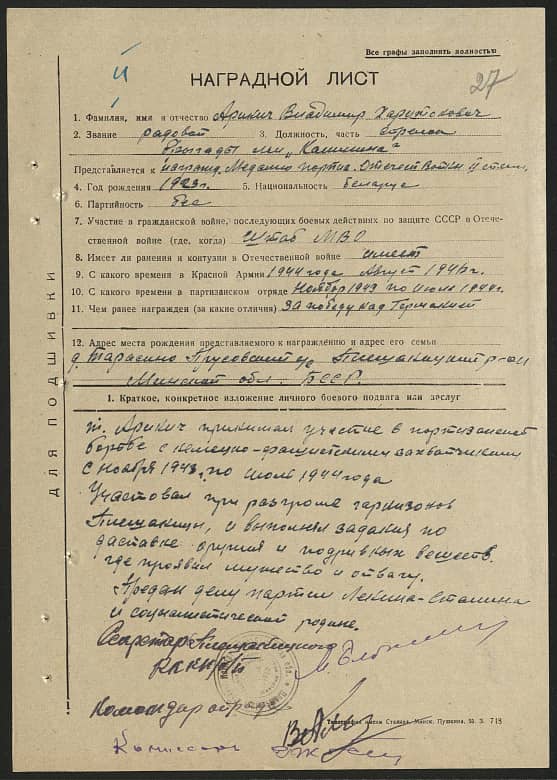 Все графы заполнять полностью
27
НАГРАДНОЙ ЛИСТ
1. Фамилия, имя и отчество Арикич Владимир
2. Звание рядовой 3. Должность, часть стрелок
Бригады им. „Калинина“
Представляется к награжд. Медалью партиз. Отечест Войны II степ.
4. Год рождения 1923г. 5. Национальность беларус
6. Партийность б/п
7. Участие в гражданской войне, последующих боевых действиях по защите СССР в Отече-
ственной войне (где, когда) Штаб МВО
8. Имеет ли ранения и контузии в Отечественной войне имеет
9. С какого времени в Красной Армии 1944 года Август
10. С какого времени в партизанском отряде Ноябрь 1943 по июль 1944г.
11. Чем ранее награжден (за какие отличия) За победу над Германией
12. Адрес места рождения представляемого к награждению и адрес его семьи
д. Тарасино Плещаницкий р-он
Минской обл. БССР.
ДЛЯ ПОДШИВКИ
I. Краткое, конкретное изложение личного боевого подвига или заслуг
т. Арикич принимал участие в портизанской
борьбе с немецко-фашистскими захватчиками
с ноября 1943г. по июль 1944 года
Участовал при разгроме гарнизонов
Плещаницы, и выполнял задания по
даставке оружия и подрывных веществ.
где проявил мужество и отвагу.
Предан делу партии Ленина-Сталина
и социалистической родине.
Секретарь Плещаницкого
РККП(б)Б
Командир отр.
Комиссар
Типография имени Сталина, Минск, Пушкина, 55 З. 718